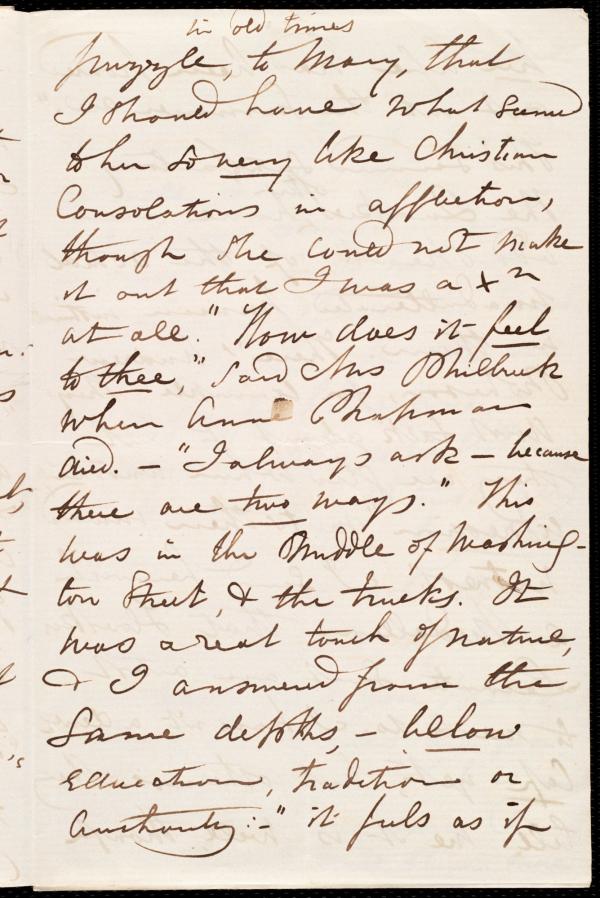 in old times
puzzle, to Mary, that
I should have what seemed
to her so very like Christian
Consolations in affliction,
though she could not make
it out that I was a xn
at all." "How does it feel
to thee," said Mrs Philbrick
when Ann Chapman
died. – "I always ask – because
there are two ways." This
was in the middle of Washing-
ton Street, & the trucks. It
was a real touch of nature,
& I answered from the
same depths, – below
education, tradition or
Authority:– "it feels as if